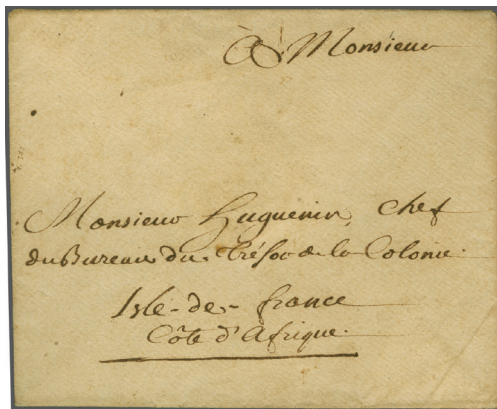 A Monsieur
Monsieur Huguenin, Chef
du Bureau du Trésor de la Colonie.
Isle-de-france
Côte d'Afrique.